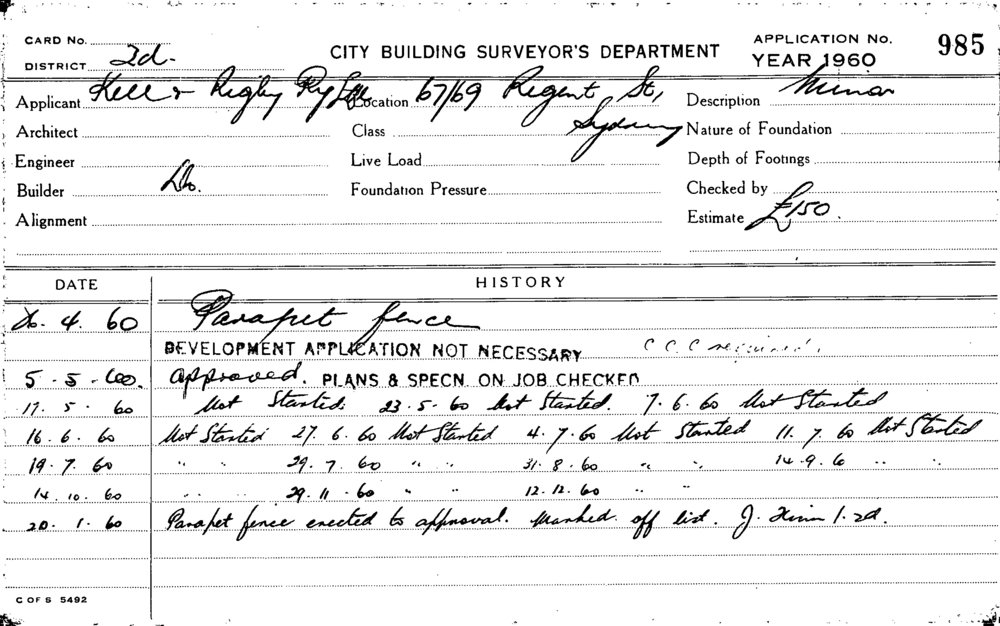 CARD No.
DISTRICT 2d.
CITY BUILDING SURVEYOR'S DEPARTMENT
APPLICATION No. 985
YEAR 1960
Applicant Kell & Rigby Pty Ltd Location 67/69 Regent St, Sydney Description Minor
Architect Class Nature of Foundation
Engineer Live Load Depth of Footings
Builder Do. Foundation Pressure Checked by
Alignment Estimate £150.
DATE HISTORY
4. 60 Parapet fence
DEVELOPMENT APPLICATION NOT NECESSARY C C C required.
5-5-60. approved. PLANS & SPECN. ON JOB CHECKED
17. 5. 60 Not Started. 23-5-60 Not Started. 7.6.60 Not Started
16.6.60 Not Started 27.6.60 Not Started 4.7.60 Not Started 11.7.60 Not Started
19.7.60 " " 29.7.60 " " 31.8.60 " " 14.9.6 " "
14.10.60 " " 29.11.60 " " 12.12.60 " "
20.1.60 Parapet fence erected to approval. Marked off list. J. 1.2d.
C OF S 5492